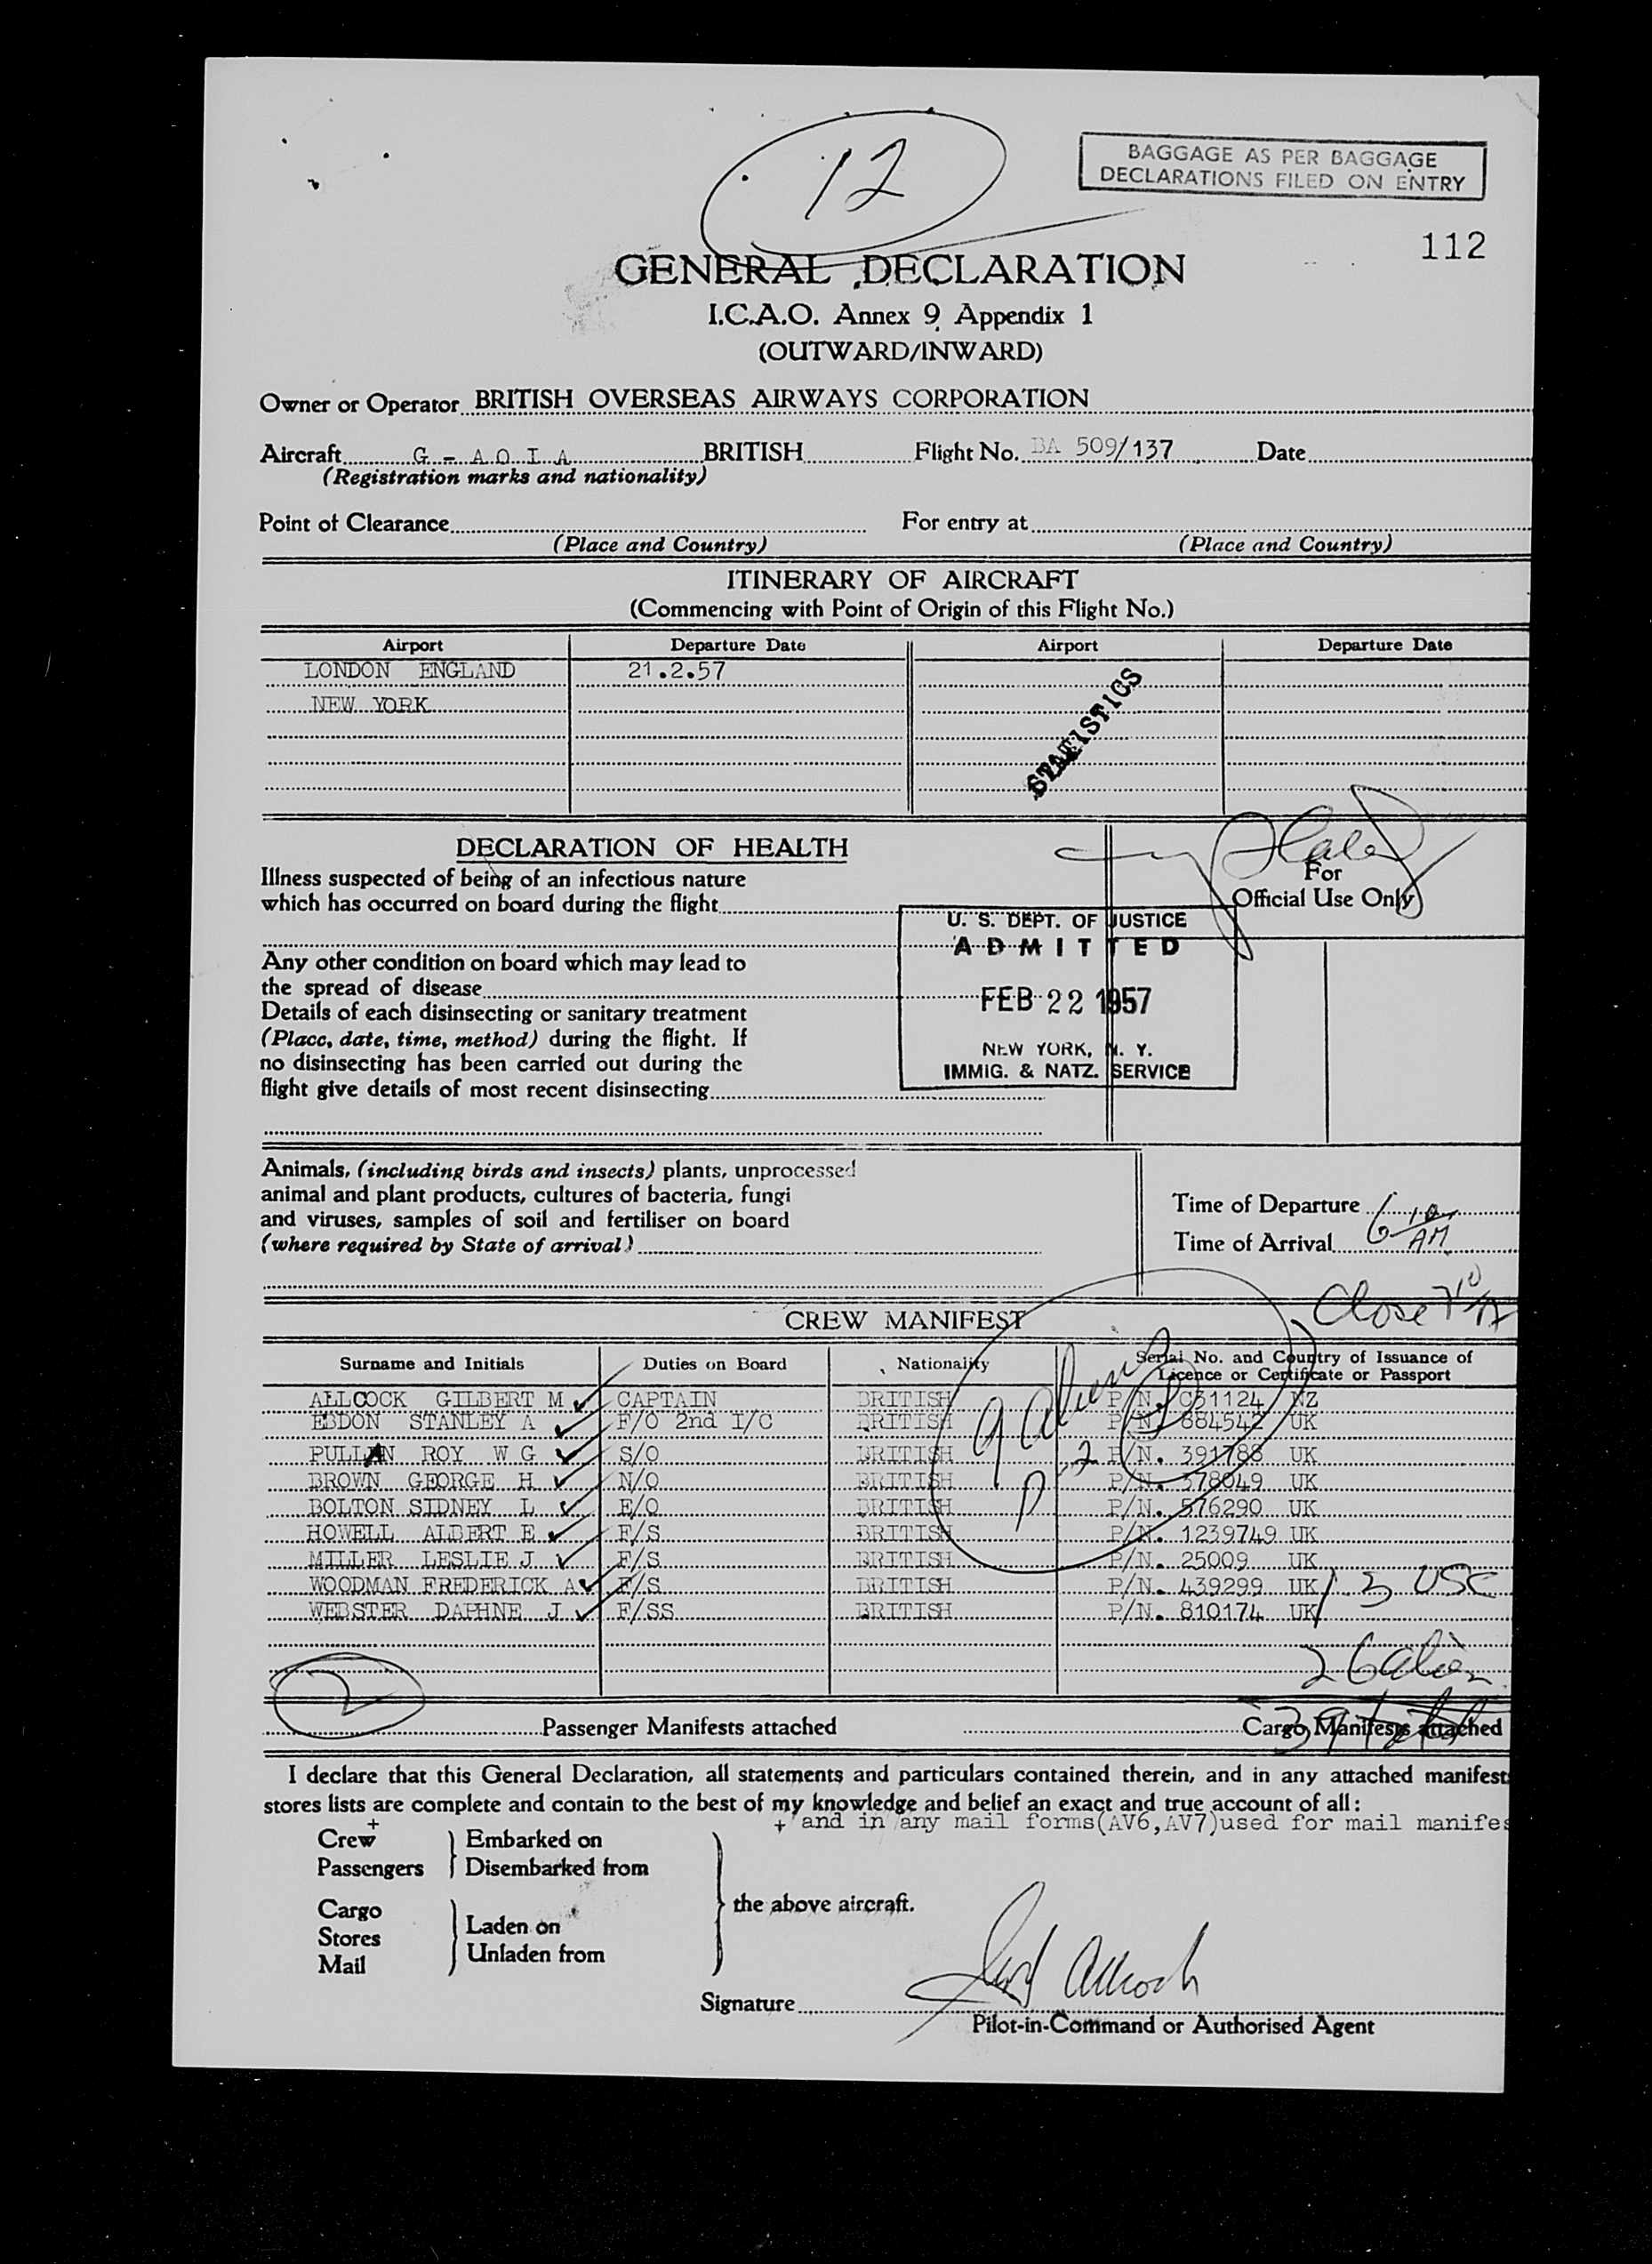 12
BAGGAGE AS PER BAGGAGE
DECLARATIONS FILED ON ENTRY
112
GENERAL DECLARATION
I.C.A.O. Annex 9 Appendix 1
(OUTWARD/INWARD)
Owner or Operator BRITISH OVERSEAS AIRWAYS CORPORATION
Aircraft G - A O I A BRITISH Flight No. BA 509/137 Date
(Registration marks and nationality)
Point of Clearance For entry at
(Place and Country) (Place and Country)
ITINERARY OF AIRCRAFT
(Commencing with Point of Origin of this Flight No.)
Airport Departure Date Airport Departure Date
LONDON ENGLAND 21.2.57
NEW YORK
STATISTICS
DECLARATION OF HEALTH
For
Official Use Only
Illness suspected of being of an infectious nature
which has occurred on board during the flight
Any other condition on board which may lead to
the spread of disease
Details of each disinsecting or sanitary treatment
(Place, date, time, method) during the flight. If
no disinsecting has been carried out during the
flight give details of most recent disinsecting
U. S. DEPT. OF JUSTICE
ADMITTED
FEB 22 1957
NEW YORK, N. Y.
IMMIG. & NATZ. SERVICE
Animals, (including birds and insects) plants, unprocessed
animal and plant products, cultures of bacteria, fungi
and viruses, samples of soil and fertiliser on board
(where required by State of arrival)
Time of Departure
Time of Arrival 6 10 AM
Close
CREW MANIFEST
Surname and Initials Duties on Board Nationality Serial No. and Country of Issuance of
Licence or Certificate or Passport
ALLCOCK GILBERT M CAPTAIN BRITISH P/N. C31124 NZ
EBDON STANLEY A F/O 2nd I/C BRITISH P/N. 884542 UK
PULLAN ROY W G S/O BRITISH P/N. 391788 UK
BROWN GEORGE H N/O BRITISH P/N. 378049 UK
BOLTON SIDNEY L E/O BRITISH P/N. 576290 UK
HOWELL ALBERT E F/S BRITISH P/N. 1239749 UK
MILLER LESLIE J F/S BRITISH P/N. 25009 UK
WOODMAN FREDERICK A F/S BRITISH P/N. 439299 UK
WEBSTER DAPHNE J F/SS BRITISH P/N. 810174 UK
9 alien
13 USC
26 alien
39
2
Passenger Manifests attached Cargo Manifests attached
I declare that this General Declaration, all statements and particulars contained therein, and in any attached manifest
stores lists are complete and contain to the best of my knowledge and belief an exact and true account of all:
+ and in any mail forms(AV6,AV7)used for mail manifes
+
Crew Embarked on
Passengers Disembarked from
the above aircraft.
Cargo
Stores Laden on
Mail Unladen from
Signature Allcock
Pilot-in-Command or Authorised Agent